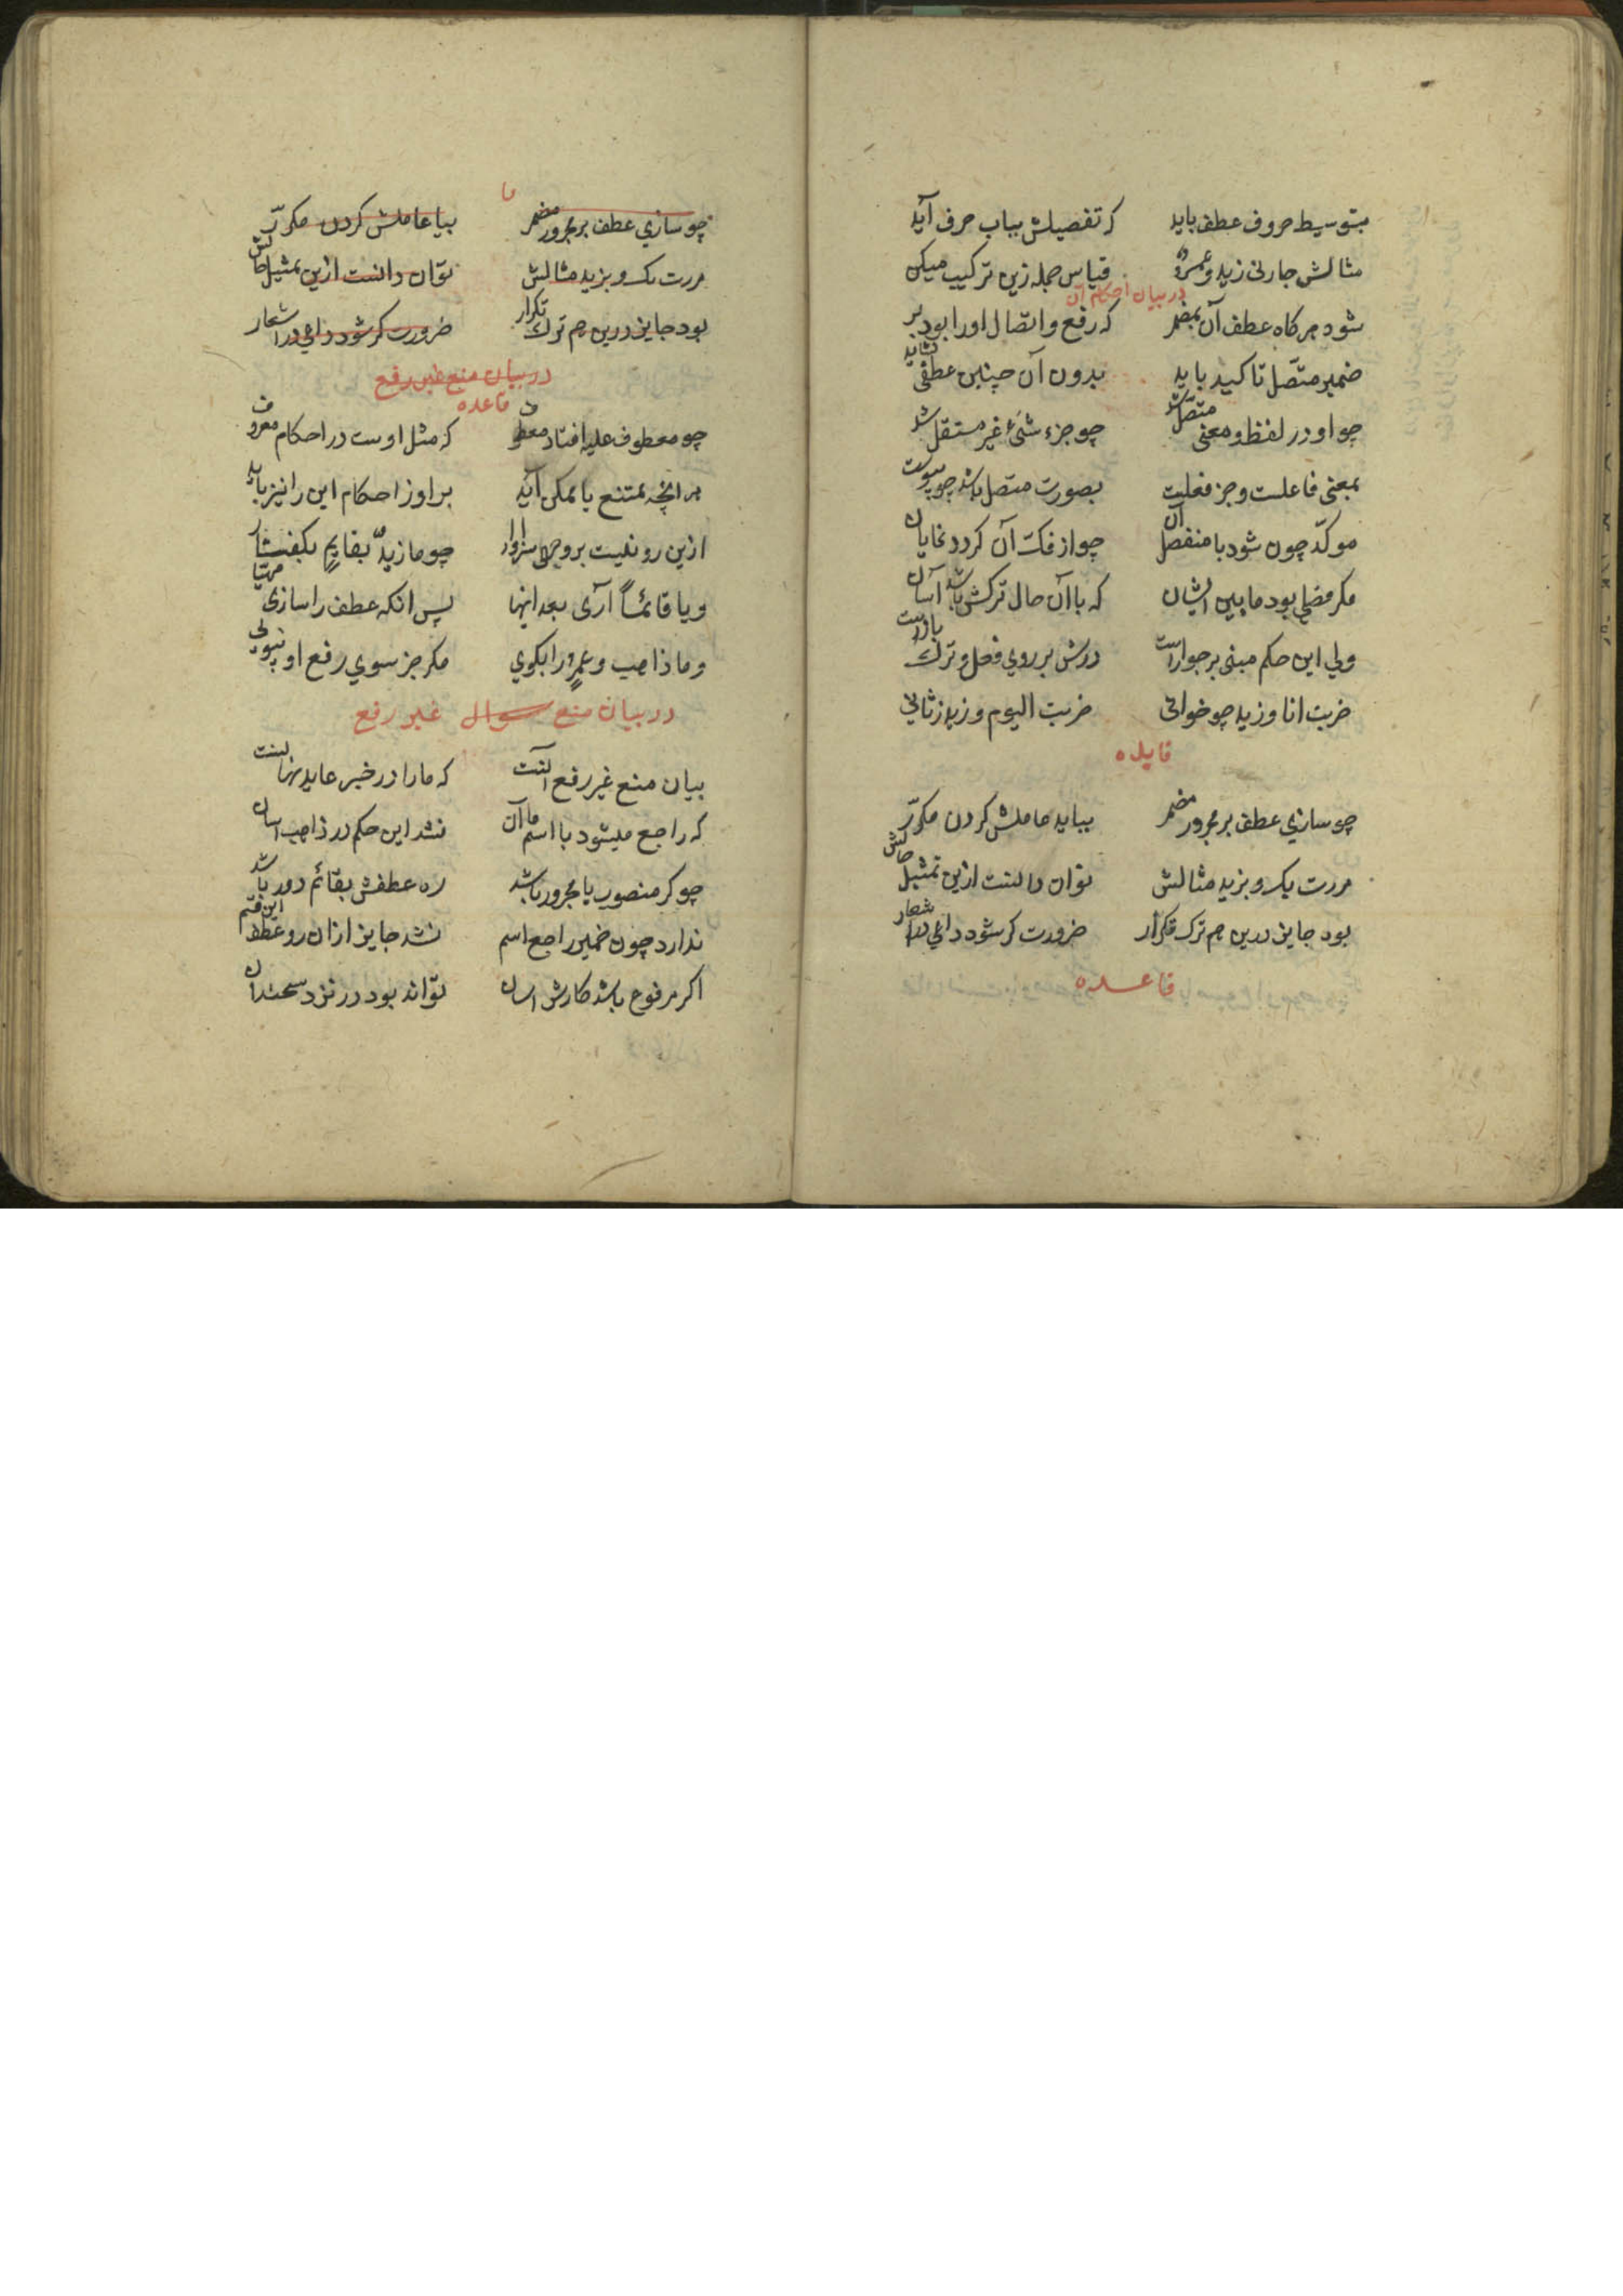 بتوسیط حروف عطف باید که تفصیلش بباب حرف آید
مثالش جارنی زید و عمرو قیاس جمله زین ترکیب میکن
در بیان احکام آن
شود هرکاه عطف آن بمضمر که رفع و اتصال اورا بود بر
ضمیر متصل تا کید باید بدون آن چنین عطفی نشاید
چو او در لفظ و معنی متصل شد چو جزء شئ غیر مستقل شد
بمعنی فاعلست و جز فعلیت بصورت متصل باشد چو پیوست
موکد چون شود با منفصل آن جواز فک آن کردد نمایان
مکر فصلی بود ما بین ایشان که با آن حال ترکش باشد آسان
ولی این حکم مبنی بر جوازاست درش بر روی فعل و ترک بازاست
ضربت انا و زید چو خوانی ضربت الیوم و زید ز ثانی
فایده
چو سازی عطف بر مجرور مضمر بباید عاملش کردن مکرر
مررت بک و بزید مثالش توان دانست ازین تمثیل حالش
بود جایز درین هم ترک تکرار ضرورت کر شود داعی در اشعار
قاعده
ما
چو سازی عطف بر مجرور مضمر بیا عاملش کردن مکرر
مررت بک و بزید مثالش توان دانست ازین تمثیل حالش
بود جایز درین هم ترک تکرار ضرورت کر شود داعی در اشعار
در بیان منع غیر رفع
قاعده
چو معطوف علیه افتاد معطوف که مثل اوست در احکام معروف
بر انچه ممتنع یا ممکن آید بر او ز احکام این را نیز باید
ازین رو نیست بر وجهی سزاوار چو ما زید بقایم بکفتار
و یا قائماً آری بعد اینها پس انکه عطف را سازی مهیا
و ما ذاهب و عمرو را بکوی مکر جز سوی رفع او نپوئی
در بیان منع سوال غیر رفع
بیان منع غیر رفع آنست که ما را در خبر عاید نهانست
که راجع میشود با اسم ما آن نشد این حکم در ذاهب اسان
چو کر منصوب یا مجرور باشد ره عطفش بقائم دور باشد
ندارد چون ضمیر راجع اسم نشد جایز ازان رو عطف این قسم
اکر مرفوع باشد کارش اسان تواند بود در نزد سخندان